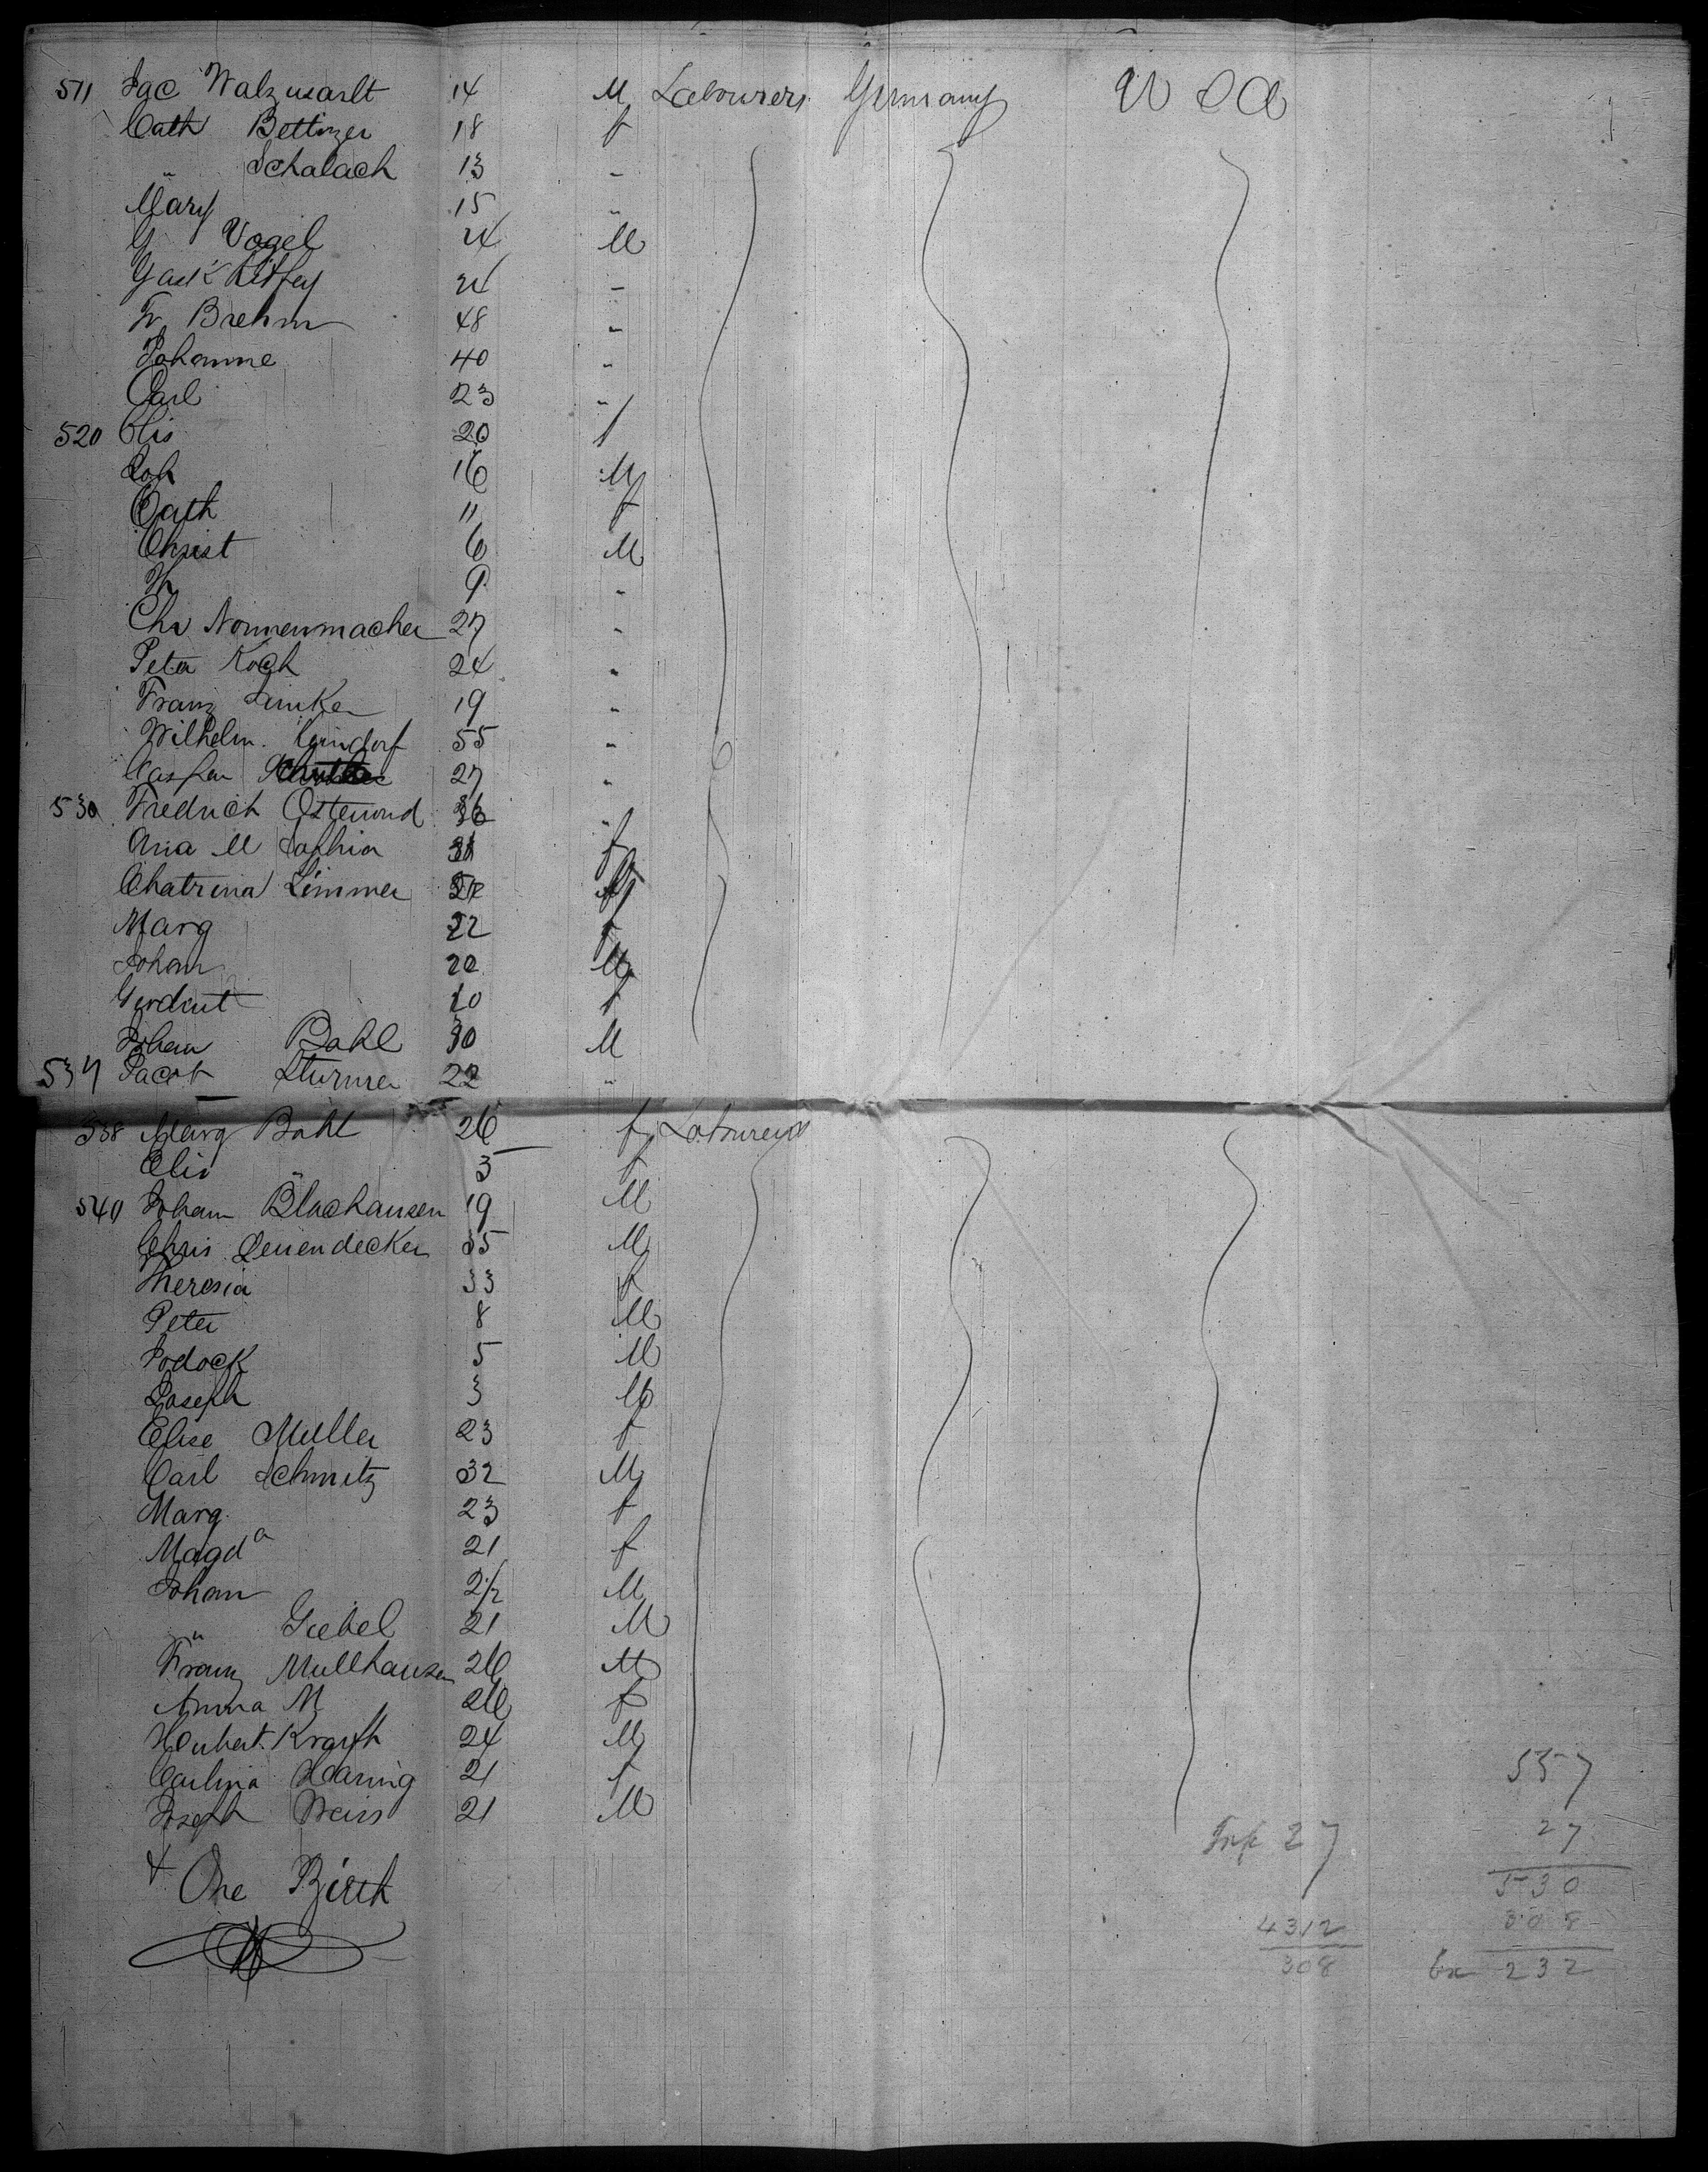 511 Jac Walzusarlt 14 M Labourers Germany U S A
Cath Bettinger 18 f
" Schalach 13 "
Mary 15 "
G Vogel 24 M
24 "
Fr Brehm 48 "
Johanne 40 "
Carl 23 "
520 Elis 20 f
Joh 16 M
Cath 11 f
Christ 6 M
W 9 "
Chr Nonnenmacher 27 "
Peter Koch 24 "
Franz Linker 19 "
Wilhelm 55 "
Caspar 27 "
530 Fredrich Ostenond 36 "
Ana M Sophia 31 f
Chatrina Limmer
Marg 22 f
Johan 20 M
10 f
Johan Bahl 30 M
537 Jacob Sturmer 22 "
538 Marg Bahl 26 f Labourers
Elis 3 f
540 Johan Blachausen 19 M
Chris Leuendecker 35 M
Theresia 33 f
Peter 8 M
Jodock 5 M
Joseph 3 M
Elise Muller 23 f
Carl Schmitz 32 M
Marg 23 f
Magda 21 f
Johan 2/12 M
" Giebel 21 M
Franz Mullhausen 26 M
Anna M 26 f
Herbert Krauth 24 M
Carlina Haring 21 f
Joseph Weiss 21 M
+ One Birth
557
Inf 27 27
530
4312 308
308 232